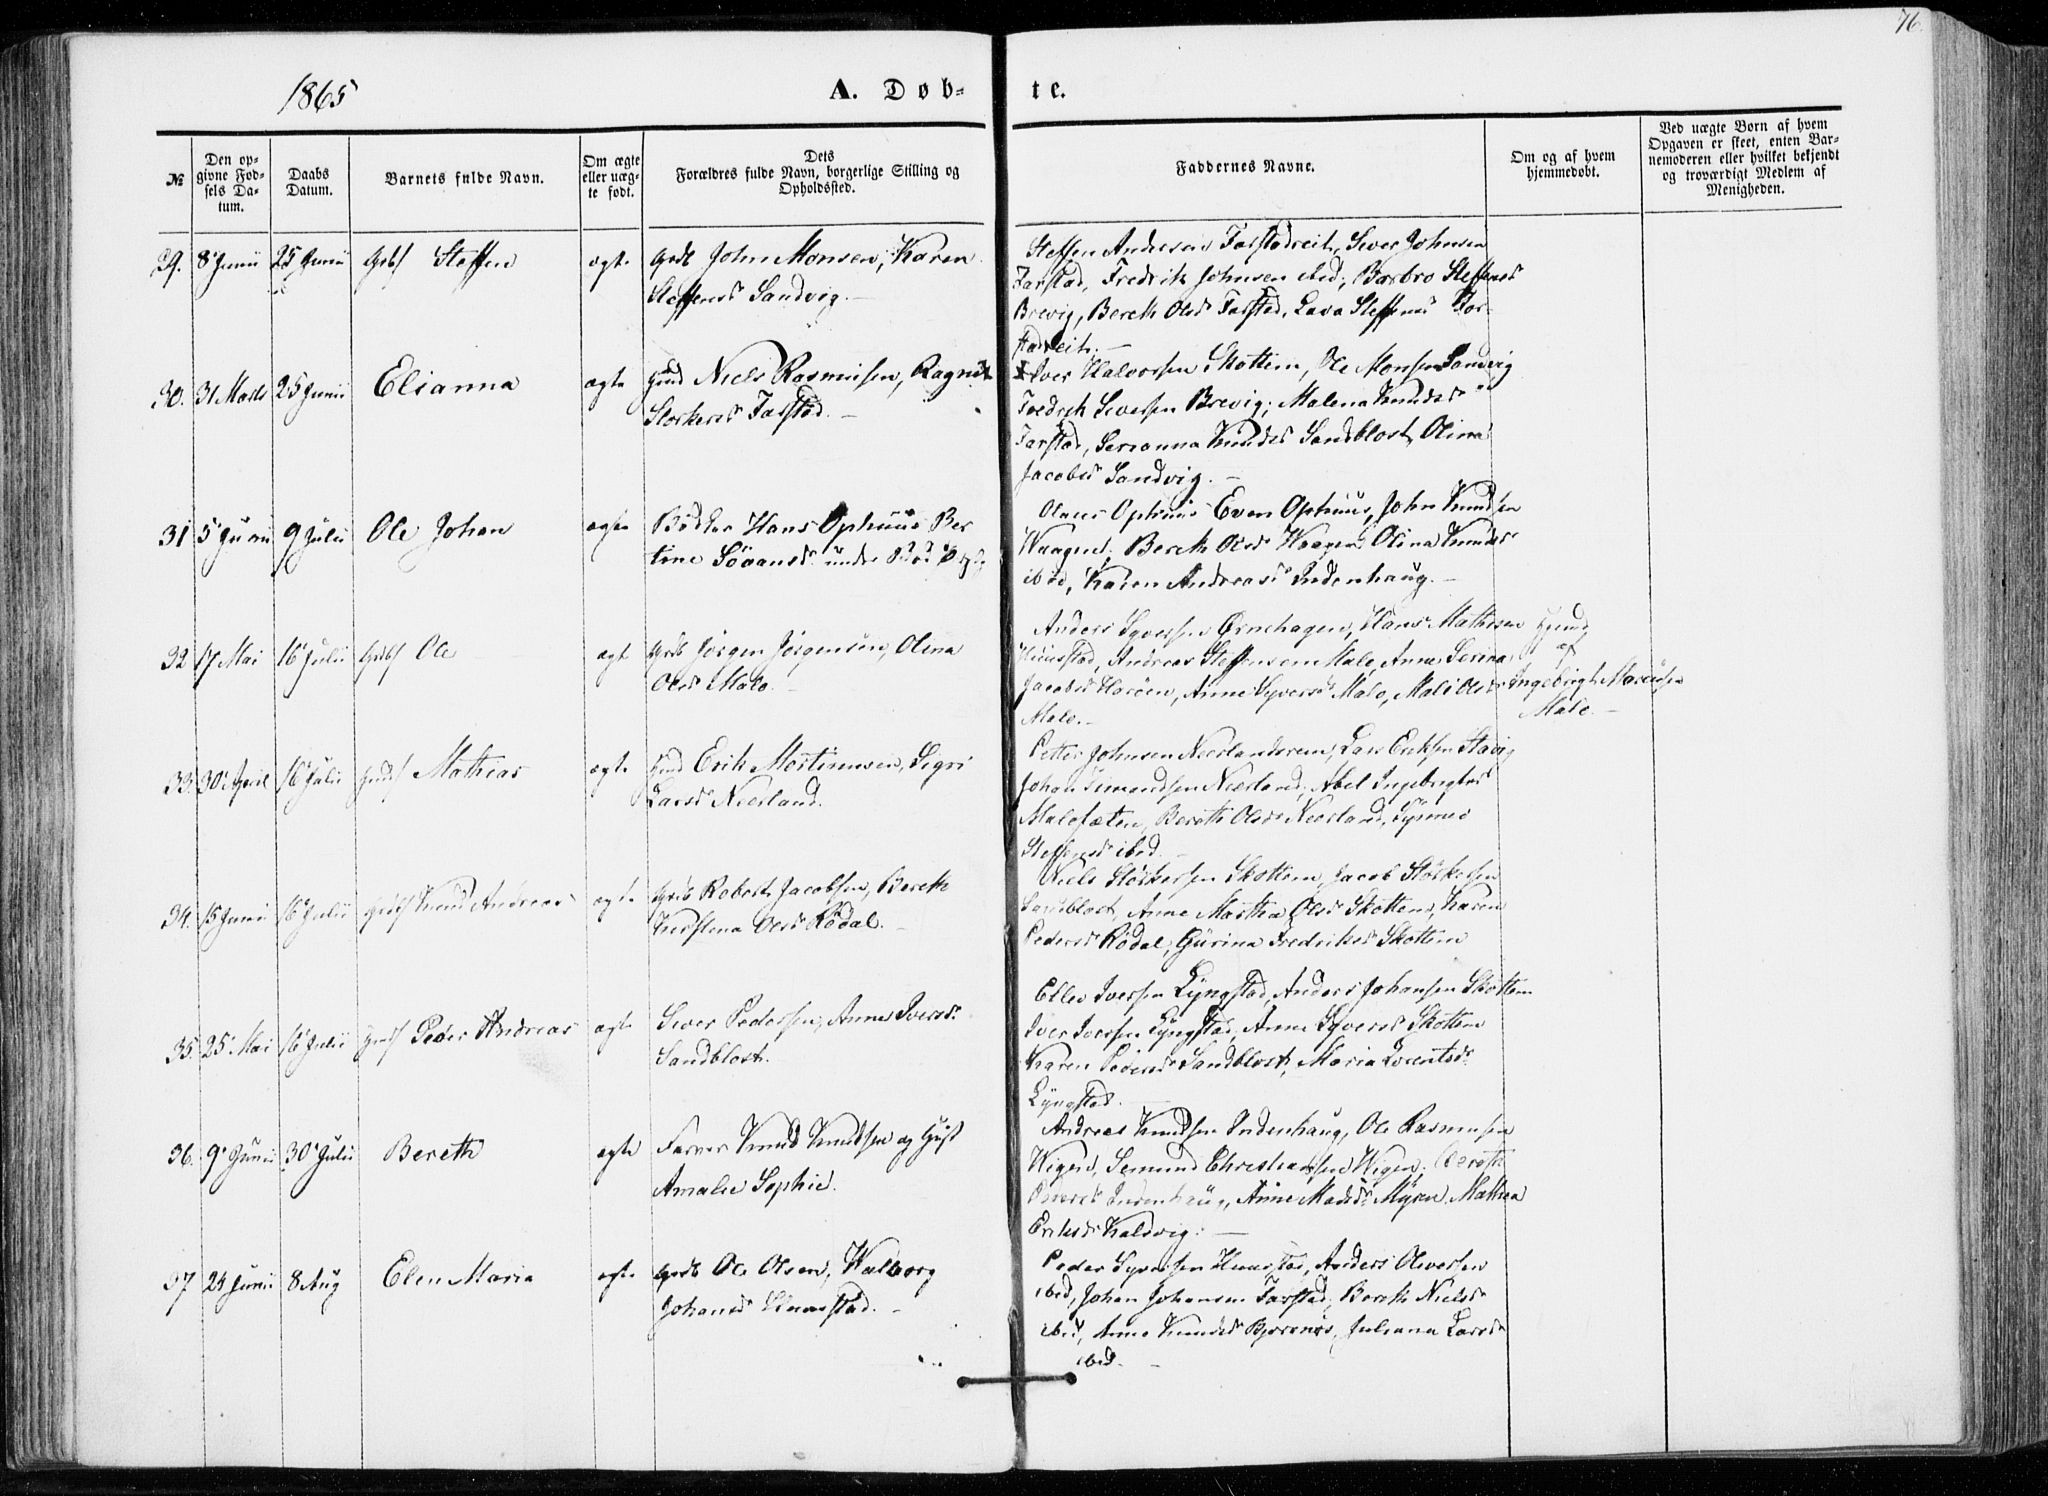 76.
1865
A. Døb-
te.
№
Den op-
givne Fød-
sels Da-
tum.
Daabs
Datum.
Barnets fulde Navn.
Om ægte
eller uæg-
te født.
Dets
Forældres fulde Navn, borgerlige Stilling og
Opholdssted.
Faddernes Navne.
Om og af hvem
hjemmedøbt.
Ved uægte Børn af hvem
Opgaven er skeet, enten Bar-
nemoderen eller hvilket bekjendt
og troværdigt Medlem af
Menigheden.
29. 8 Junii 25 Junii Steffen ægte John Monsen, Karen
Steffensd Sandvig.
Steffen Andersen Farstadreit, Sever Johnsen
Farstad, Fredrik Johnsen ibid, Barbro Steffensd
Brevig, Bereth Olsd Farstad, Lava Steffensd Far-
stadreit.
30. 31 Marts 25 Junii Elianna ægte Niels Rasmusen, Ragnil
Storkersd Farstad.
Iver Halvorsen Skottem, Ole Monsen Sandvig
Fredrik Seversen Brevig; Malena Knudsd
Farstad, Serianna Knudsd Sandblost, Olina
Jacobsd Sandvig.
31 5 Junii 9 Julii Ole Johan ægte Bødker Hans Ophuus Ber
tine Sörensd under
Olaus Ophuus Even Ophuus, John Knudsen
Waagen, Bereth Olsd Waagen Olina Knudsd
ibid, Karen Andreasd Indenhaug.
32 17 Mai 16 Julii Ole ægt Jörgen Jörgensen, Olina
Olsd Malo.
Anders Syversen Ørnehagen, Hans Mathisen
Huustad, Andreas Steffensen Malo, Anne Serina
Jacobsd Harøen, Anne Syversd Malo, Mali Olsd
Malo.
Hjemd
af
Ingebrigt Marcusen
Malo.
33. 30 April 16 Julii Mathias ægte Erik Mortinusen, Sigri
Larsd Neerland.
Petter Johnsen Neerlandsrem, Lars Eriksen Stavig
Johan Simondsen Neerland, Abel Ingebrigtsd
Malosæten, Bereth Olsd Neerland, Synnev
Steffensd ibid.
34. 15 Junii 16 Julii Knud Andreas ægte Robert Jacobsen, Bereth
Kirstina Olsd Rödal.
Niels Störkersen Skottem, Jacob Störkesen
Sandblost, Anne Martha Olsd Skottem, Karen
Pedersd Rödal, Gurina Fredriksd Skottem
35. 25 Mai 16 Julii Peder Andreas ægte Sever Pedersen, Anne Iversd
Sandblost.
Ellev Iversen Lyngstad, Anders Johansen Skottem
Iver Iversen Lyngstad, Anne Syversd Skottem
Karen Pedersd Sandblost, Maria Lorentsd
Lyngstad.
36. 9 Junii 30 Julii Bereth ægte Farver Knud Knudsen og Hust
Amalie Sophie.
Andreas Knudsen Indenhaug, Ole Rasmusen
Wigen, Semund Christiansen Wigen, Bereth
Indenhaug, Anne Madsd Myren, Mathea
Eriksd Kaldvig.
37 24 Junii 8 Aug Elen Maria ægte Ole Olsen, Walborg
Johansd Huustad.
Peder Syversen Huustad, Anders Olversen
ibid, Johan Johansen Farstad, Bereth Nielsd
ibid, Anne Knudsd Bjørnes, Juliana Larsd
ibid.